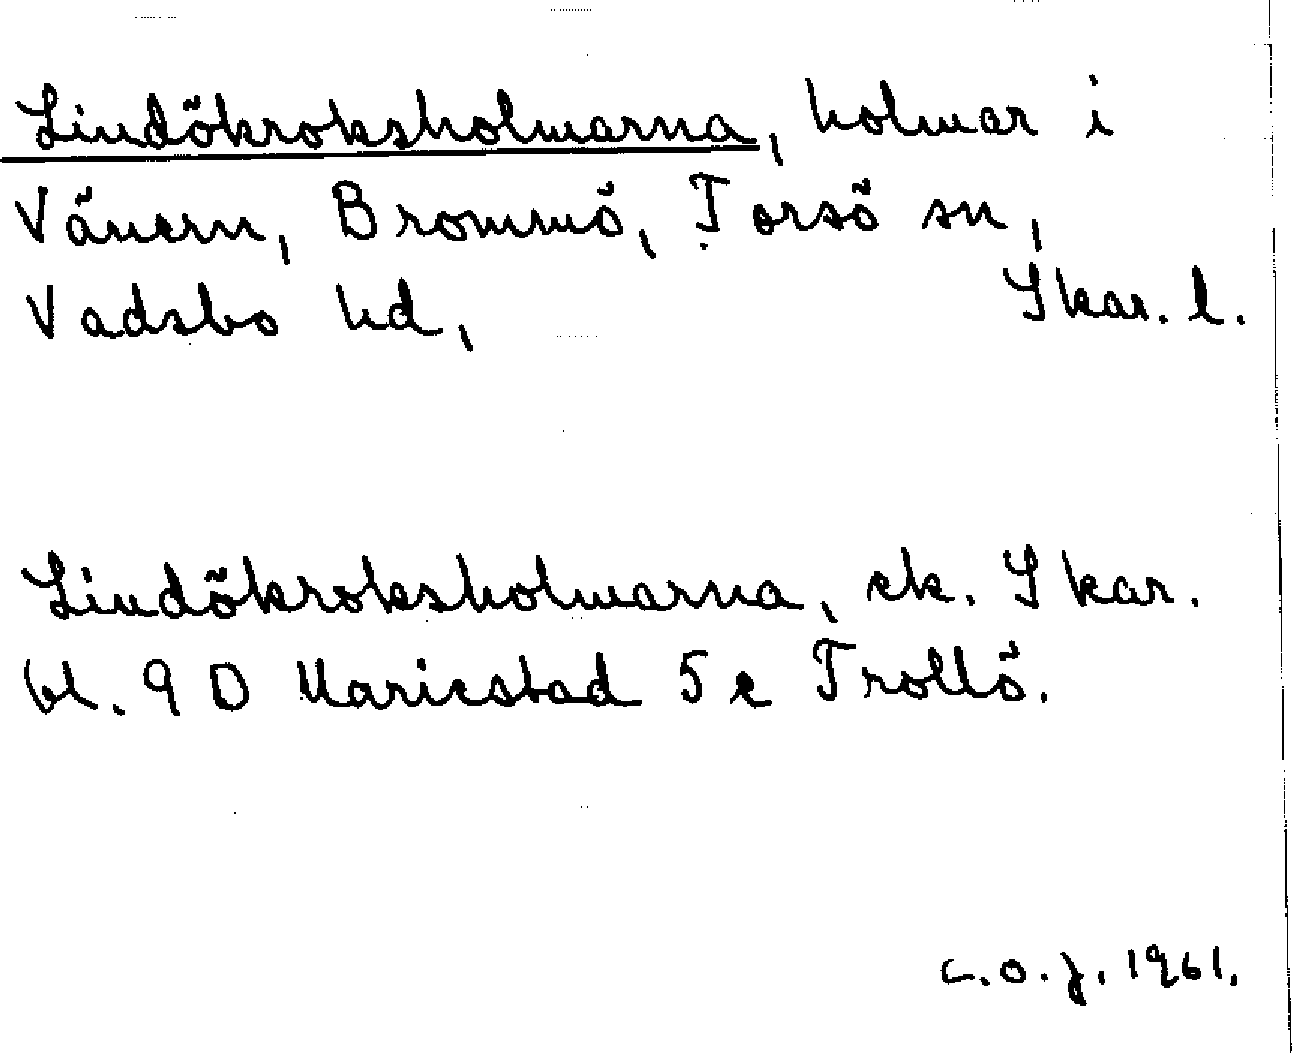 Lindökroksholmarna, holmar i
Vänern, Brommö, Torsö sn,
Vadsbo hd, Skar. l.
Lindökroksholmarna, ek. Skar.
bl. 9 D Mariestad 5 e Trollö.
C.O.J. 1961.